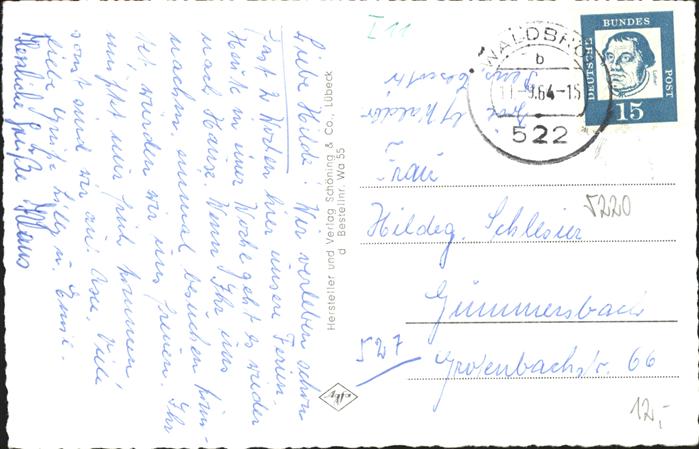 Liebe Hilde! Wir verleben schon
fast 2 Wochen hier unsere Ferien.
Heute in einer Woche geht es wieder
nach Hause. Wenn Ihr uns
nachm. einmal besuchen könn-
tet, würden wir uns freuen. Ihr
müßt nur früh kommen,
sonst sind wir Viele
liebe Grüße Lilly u. Ernst.
Herzliche Grüße Klaus
Hersteller und Verlag Schöning & Co., Lübeck
d Bestellnr. Wa 55
I 11
WALDBRÖL
b
11.-9.64-15
522
DEUTSCHE BUNDESPOST
15
Frau
5220
Hildeg. Schlesier
527 Gummersbach
Grotenbachstr. 66
12,-